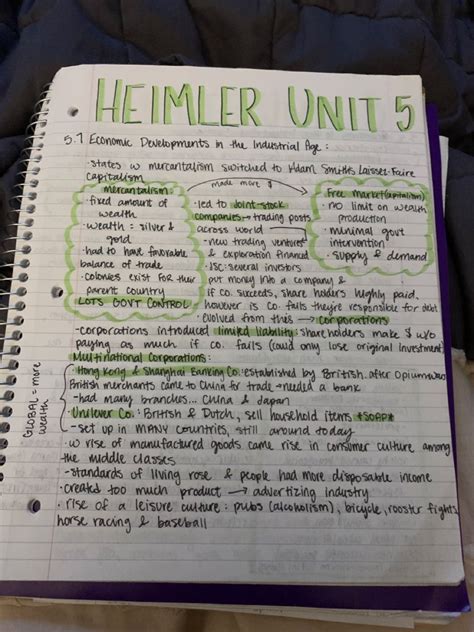 HEIMLER UNIT 5
5.7 Economic Developments in the Industrial Age:
·states w mercantalism switched to Adam Smith's Laissez-Faire
capitalism
mercantalism
·fixed amount of
wealth
·wealth = silver &
gold
·had to have favorable
balance of trade
·colonies exist for their
parent country
LOTS GOVT CONTROL
made more $
·led to joint-stock
companies → trading posts
across world
-new trading ventures
& exploration financed
·JSC: several investors
put money into a company &
if co. succeeds, share holders highly paid.
however is co. fails they're responsible for debt
·evolved from this → corporations
Free Market (capitalism)
·NO limit on wealth
production
·minimal govt
intervention
·supply & demand
-corporations introduced limited liability: share holders make $ w/o
paying as much if co. fails (could only lose original investment)
Multinational Corporations:
GLOBAL = more
wealth
·Hong Kong & Shanghai Banking Co: established by British after Opium wars
British merchants came to China for trade → needed a bank
-had many branches... China & Japan
·Unilever Co: British & Dutch, sell household items *SOAP*
- set up in MANY countries, still around today
·w rise of manufactured goods came rise in consumer culture among
the middle classes
-standards of living rose & people had more disposable income
·created too much product → advertizing industry
·rise of a leisure culture: pubs (alcoholism), bicycle, rooster fights,
horse racing & baseball